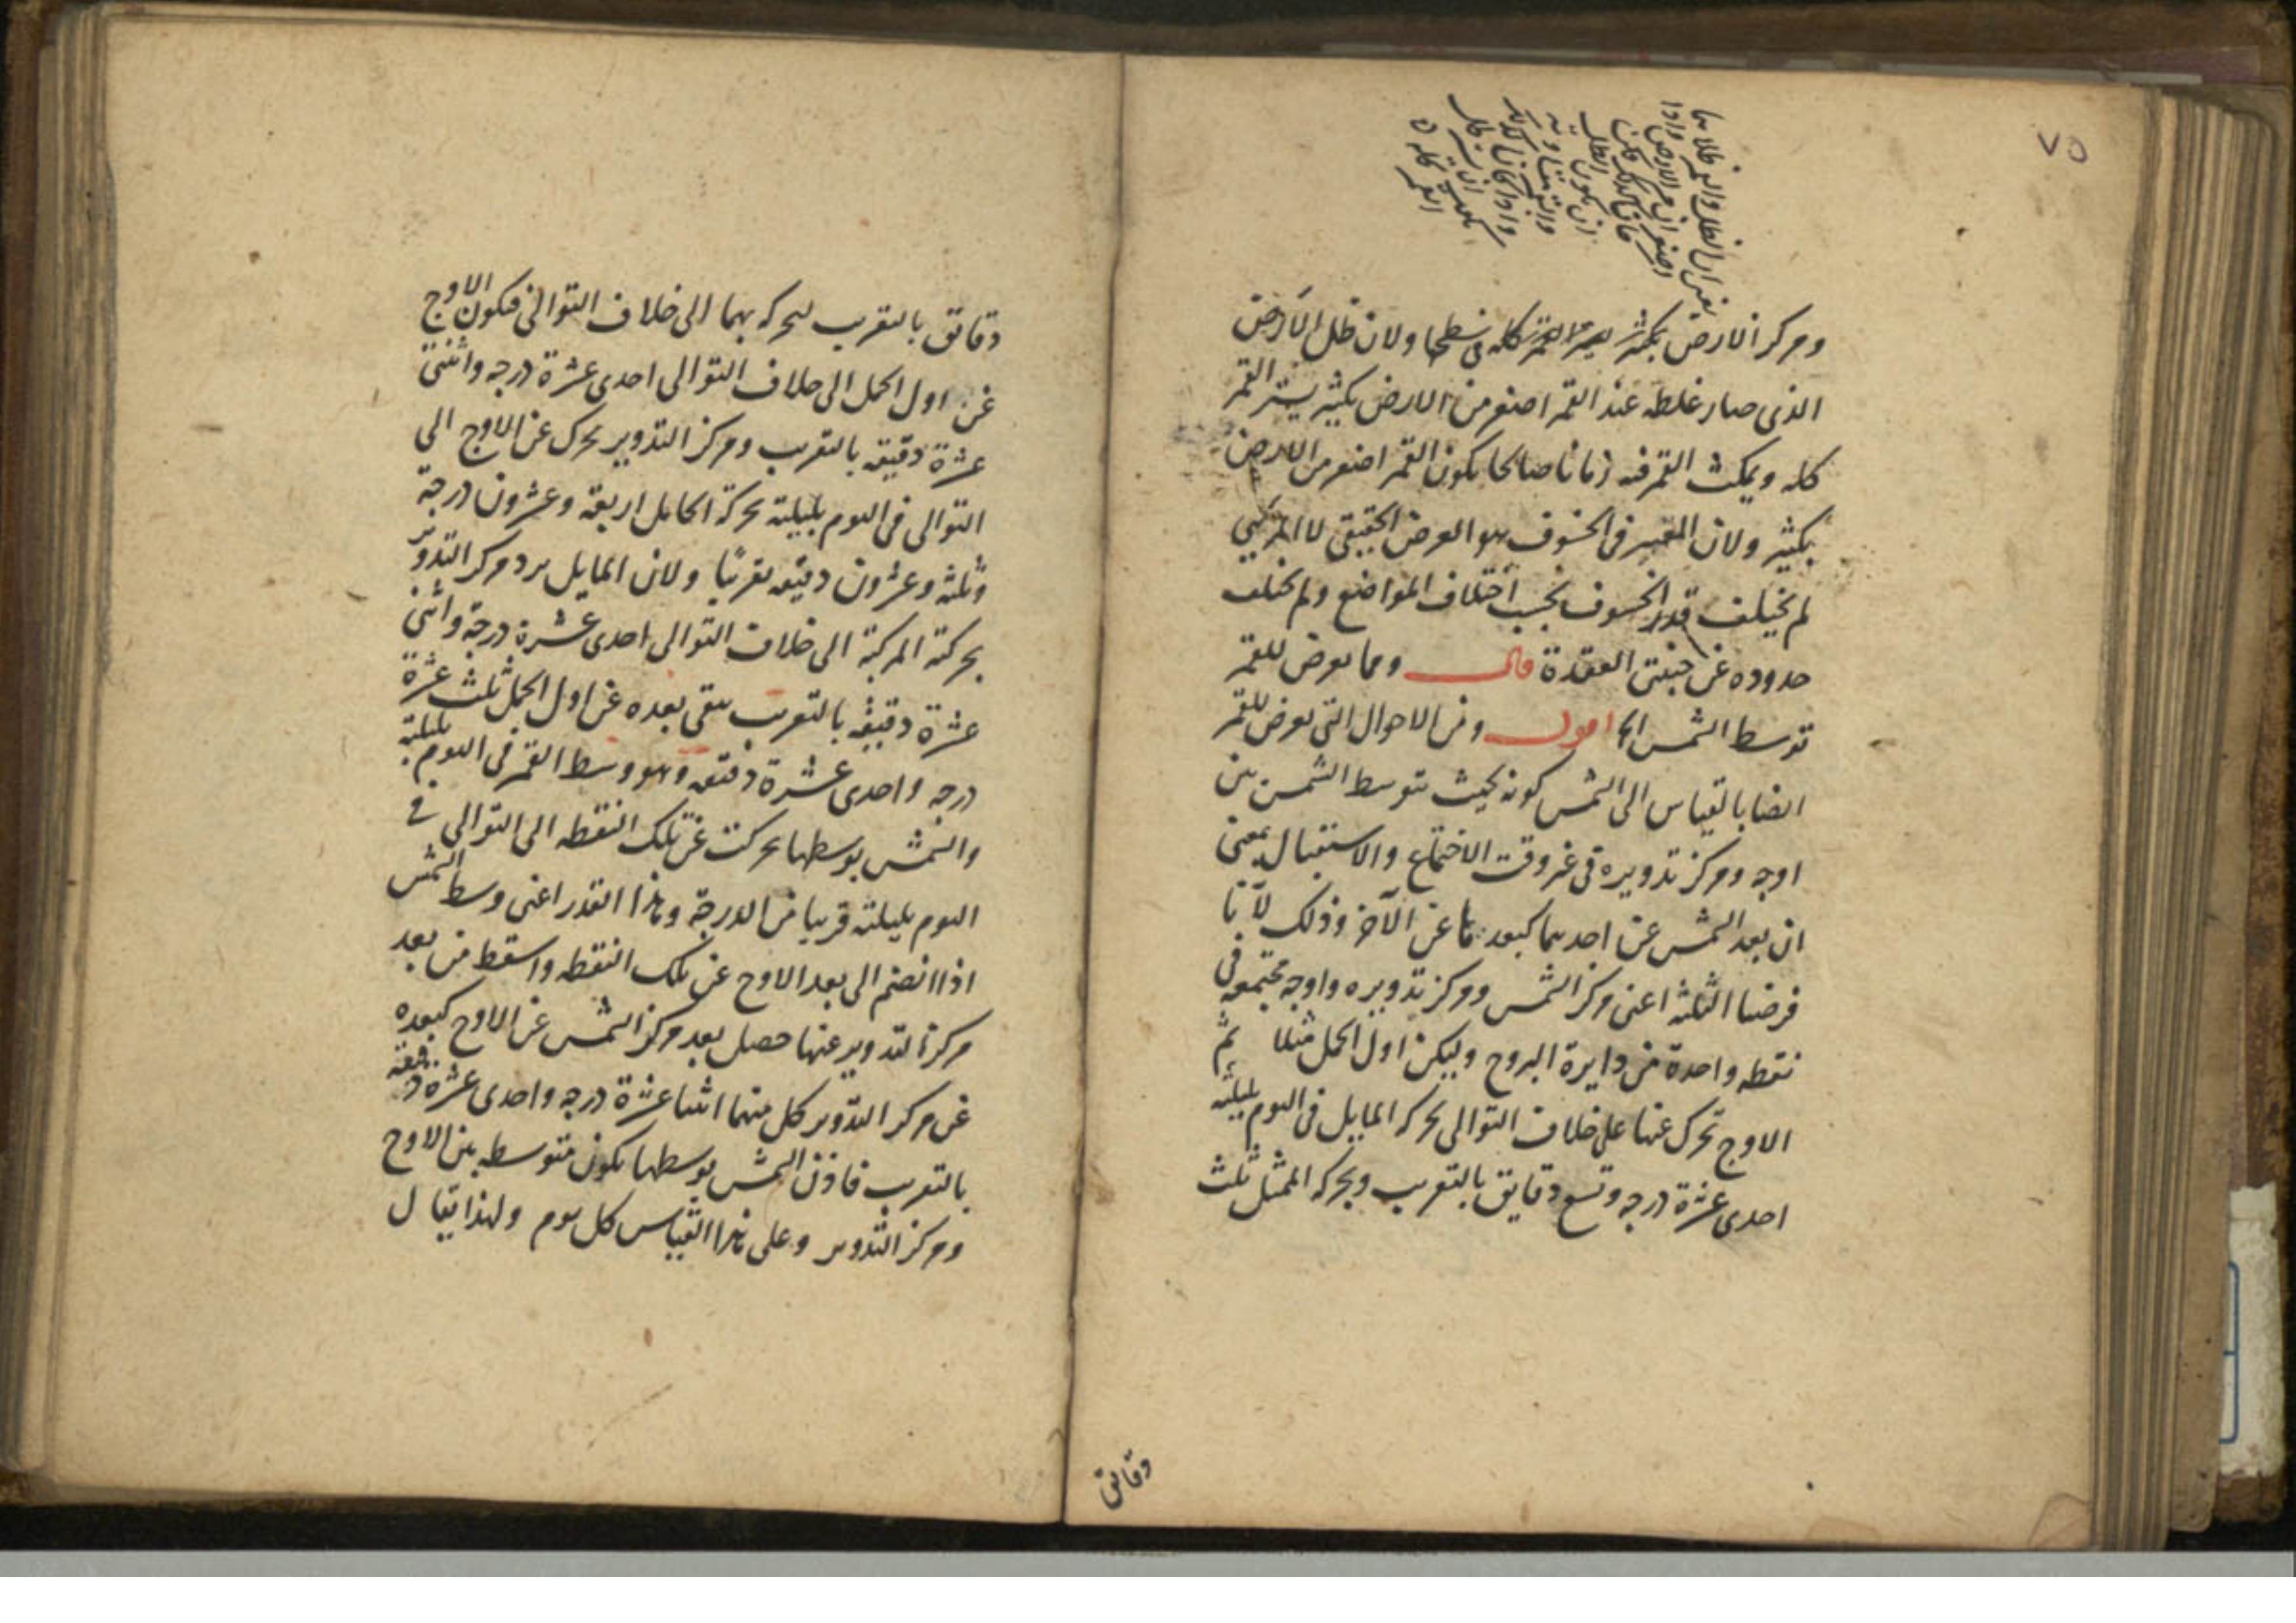 ٧٥
ومركز الارض بكثير يستر القمر كله فى سطحها ولان ظل الارض
الذى صار غلظه عند القمر اصغر من الارض بكثير يستر القمر
كله ويمكث القمر فيه زمانا صالحا يكون القمر اصغر من الارض
بكثير ولان المعتبر فى الخسوف هو العرض الحقيقى لا المرئى
لم يختلف قدر الخسوف بحسب اختلاف المواضع ولم يختلف
حدوده عن جنبتى العقدة قال ومما يعرض للقمر
توسط الشمس الخ اقول ومن الاحوال التى تعرض للقمر
ايضا بالقياس الى الشمس كونه بحيث تتوسط الشمس بين
اوجه ومركز تدويره فى غير وقت الاجتماع والاستقبال بمعنى
ان بعد الشمس عن احدهما كبعدها عن الآخر وذلك لانا
فرضنا الثلثة اعنى مركز الشمس ومركز تدويره واوجه مجتمعة فى
نقطه واحدة من دايرة البروج وليكن اول الحمل مثلا ثم
الاوج تحرك عنها على خلاف التوالى بحركه المايل فى اليوم بليلته
احدى عشرة درجه وتسع دقايق بالتقريب وبحركه الممثل ثلث
دقايق
دقايق بالتقريب لتحركه بهما الى خلاف التوالى فيكون الاوج
عن اول الحمل الى خلاف التوالى احدى عشرة درجه واثنتى
عشرة دقيقه بالتقريب ومركز التدوير تحرك عن الاوج الى
التوالى فى اليوم بليلته بحركة الحامل اربعة وعشرون درجة
وثلثه وعشرون دقيقه تقريبًا ولان المايل يرد مركز التدوير
بحركته المركبة الى خلاف التوالى احدى عشرة درجة واثنتى
عشرة دقيقه بالتقريب يبقى بعده عن اول الحمل ثلث عشرة
درجه واحدى عشرة دقيقه وهو وسط القمر فى اليوم بليلته
والشمس بوسطها تحركت عن تلك النقطه الى التوالى فى
اليوم بليلته قريبا من الدرجة وهذا القدر اعنى وسط الشمس
اذا انضم الى بعد الاوج عن تلك النقطه واسقط من بعد
مركز التدوير عنها حصل بعد مركز الشمس عن الاوج كبعده
عن مركز التدوير كل منهما اثنا عشرة درجه واحدى عشرة دقيقه
بالتقريب فاذن الشمس بوسطها يكون متوسطه بين الاوج
ومركز التدوير وعلى هذا القياس كل يوم ولهذا يقال